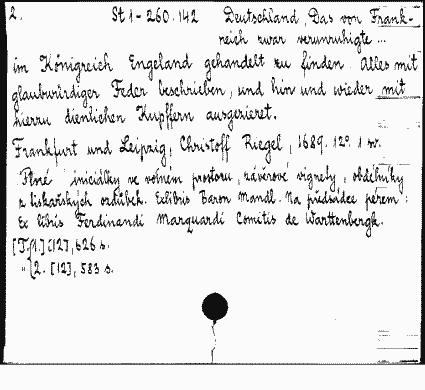 2. St 1-260.142 Deutschland, Das von Frank-
reich zwar verunruhigte ...
im Königreich Engeland gehandelt zu finden. Alles mit
glaubwürdiger Feder beschrieben, und hin und wieder mit
hierzu dienlichen Kupffern ausgezieret.
Frankfurt und Leipzig, Christoff Riegel, 1689. 12°. 1 sv.
Plné iniciálky ve volném prostoru, závěrové vignety, obdélníky
z tiskařských ozdůbek. Exlibris Baron Mandl. Na předsádce pérem:
Ex libris Ferdinandi Marquardi Comitis de Warttenbergk.
[T.] [1.] [12], 626 s.
" 2. [12], 583 s.